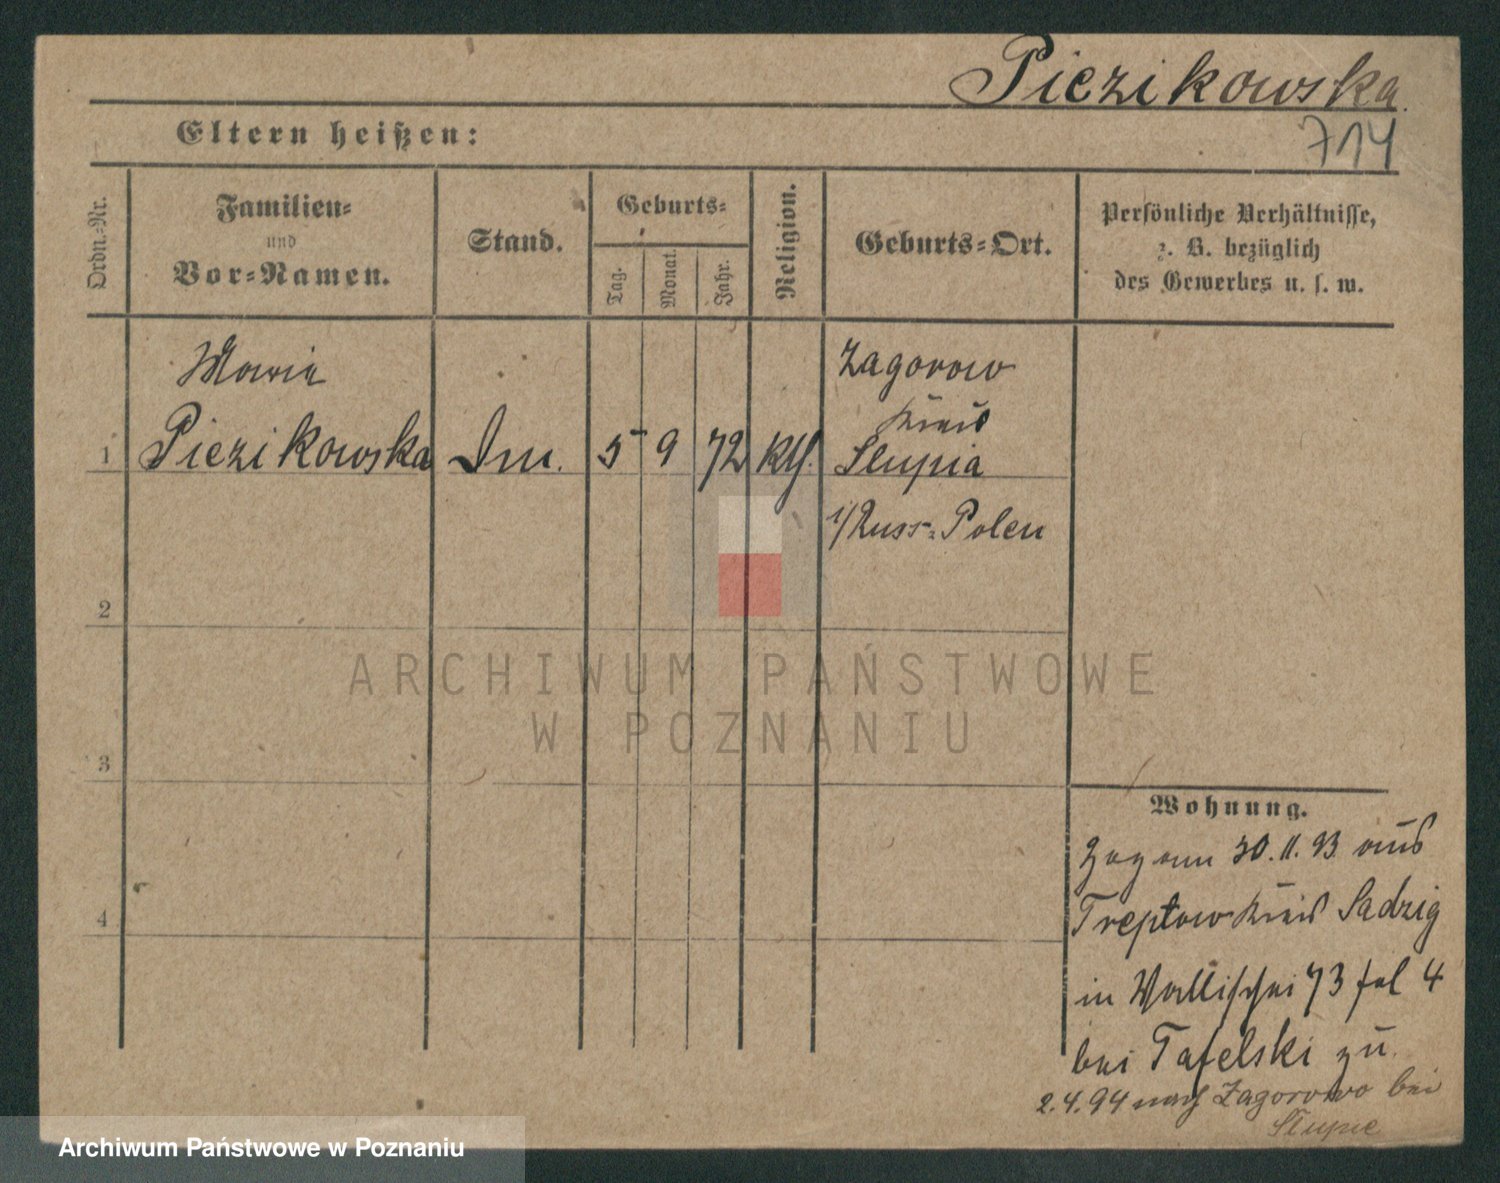 Piezikowska
714
Eltern heißen:
Ordn.-Nr.
Familien-
und
Vor-Namen.
Stand.
Geburts-
Tag.
Monat.
Jahr.
Religion.
Geburts-Ort.
Persönliche Verhältnisse,
z. B. bezüglich
des Gewerbes u. s. w.
Marie
Zagorow
Kreis
1 Piezikowska 5 9 72 Kth. Slupia
i/Russ-Polen
2
3
4
Wohnung.
Zog am 30.11.93 aus
Treptow Kreis Sadzig
in Wallischei 73 bei
bei Tafelski zu.
2.4.94 nach Zagorowo bei
Slupie
ARCHIWUM PAŃSTWOWE
W POZNANIU
Archiwum Państwowe w Poznaniu